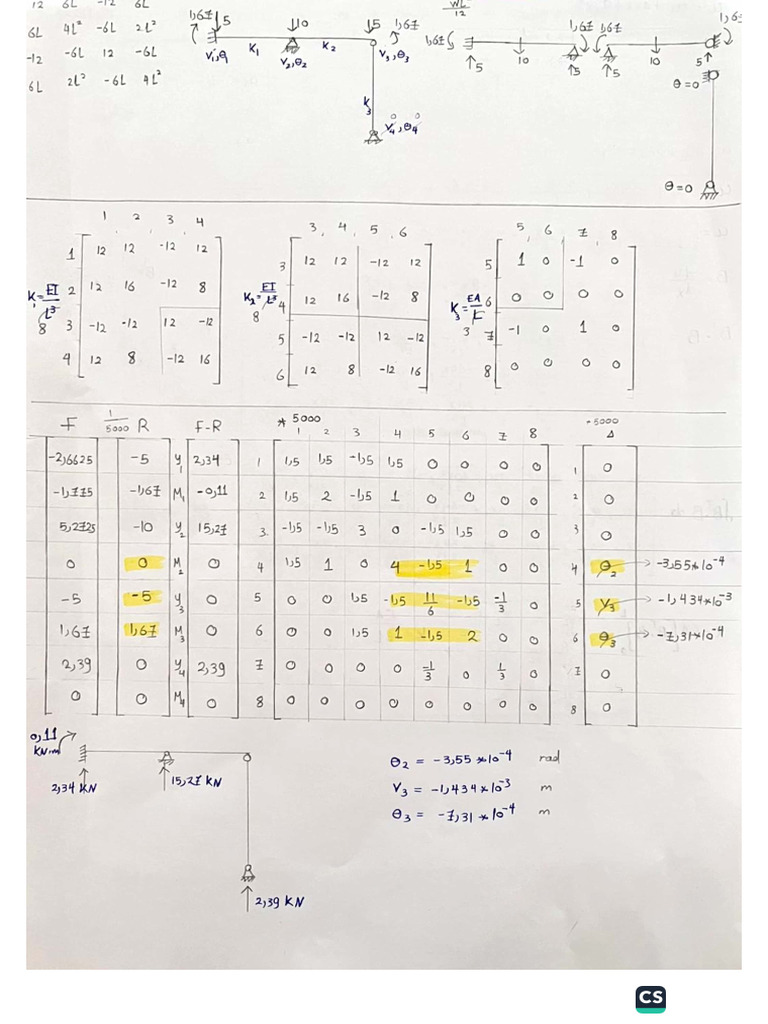 12 6L -12 6L
6L 4L² -6L 2L²
-12 -6L 12 -6L
6L 2L² -6L 4L²
WL
12
1,67 5 10 5 1,67
K1 K2
V1,θ1 V2,θ2 V3,θ3
K3
0 0
V4,θ4
1,67 5 10 5 1,67 1,67 5 10 5 1,67
θ=0
θ=0
1 , 2 , 3 , 4
K1 = EI/L³
8
1 12 12 -12 12
2 12 16 -12 8
3 -12 -12 12 -12
4 12 8 -12 16
3 , 4 , 5 , 6
K2 = EI/L³
8
3 12 12 -12 12
4 12 16 -12 8
5 -12 -12 12 -12
6 12 8 -12 16
5 , 6 , 7 , 8
K3 = EA/L
3
5 1 0 -1 0
6 0 0 0 0
7 -1 0 1 0
8 0 0 0 0
F 1/5000 R F-R * 5000 *5000 Δ
1 2 3 4 5 6 7 8
-2,6625 -5 Y1 2,34 1 1,5 1,5 -1,5 1,5 0 0 0 0 1 0
-1,775 -1,67 M1 -0,11 2 1,5 2 -1,5 1 0 0 0 0 2 0
5,2725 -10 Y2 15,27 3 -1,5 -1,5 3 0 -1,5 1,5 0 0 3 0
0 0 M2 0 4 1,5 1 0 4 -1,5 1 0 0 4 θ2 → -3,55*10⁻⁴
-5 -5 Y3 0 5 0 0 1,5 -1,5 11/6 -1,5 -1/3 0 5 V3 → -1,434*10⁻³
1,67 1,67 M3 0 6 0 0 1,5 1 -1,5 2 0 0 6 θ3 → -7,31*10⁻⁴
2,39 0 Y4 2,39 7 0 0 0 0 -1/3 0 1/3 0 7 0
0 0 M4 0 8 0 0 0 0 0 0 0 0 8 0
0,11
KN.m
2,34 KN 15,27 KN
2,39 KN
θ2 = -3,55*10⁻⁴ rad
V3 = -1,434*10⁻³ m
θ3 = -7,31*10⁻⁴ m
CS